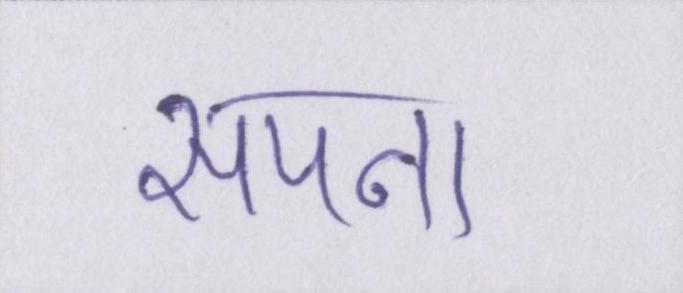 सपना